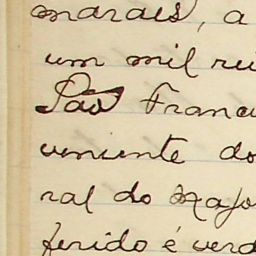 maraes, a
um mil rei
São Franci
veniente do
ral do Majo
ferido é verd